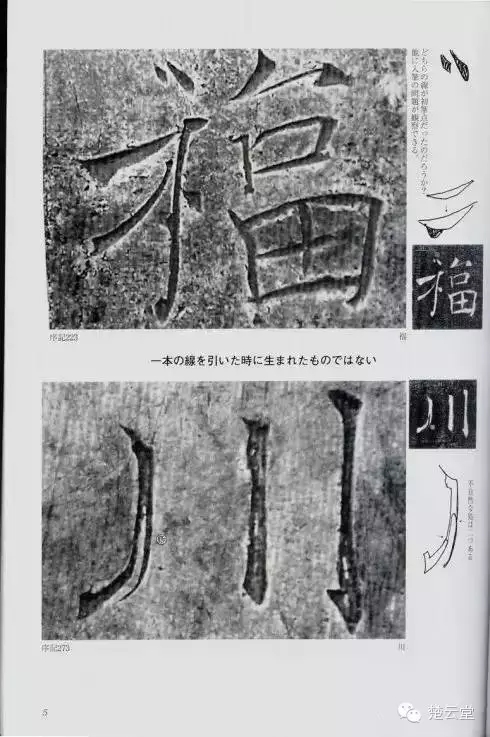 福
どちらの線が初筆点だったのだろうか？
他に入筆の問題が観察できる。
福
序記223
福
一本の線を引いた時に生まれたものではない
川
川
不自然な処は二つある
序記273
川
5
楚云堂